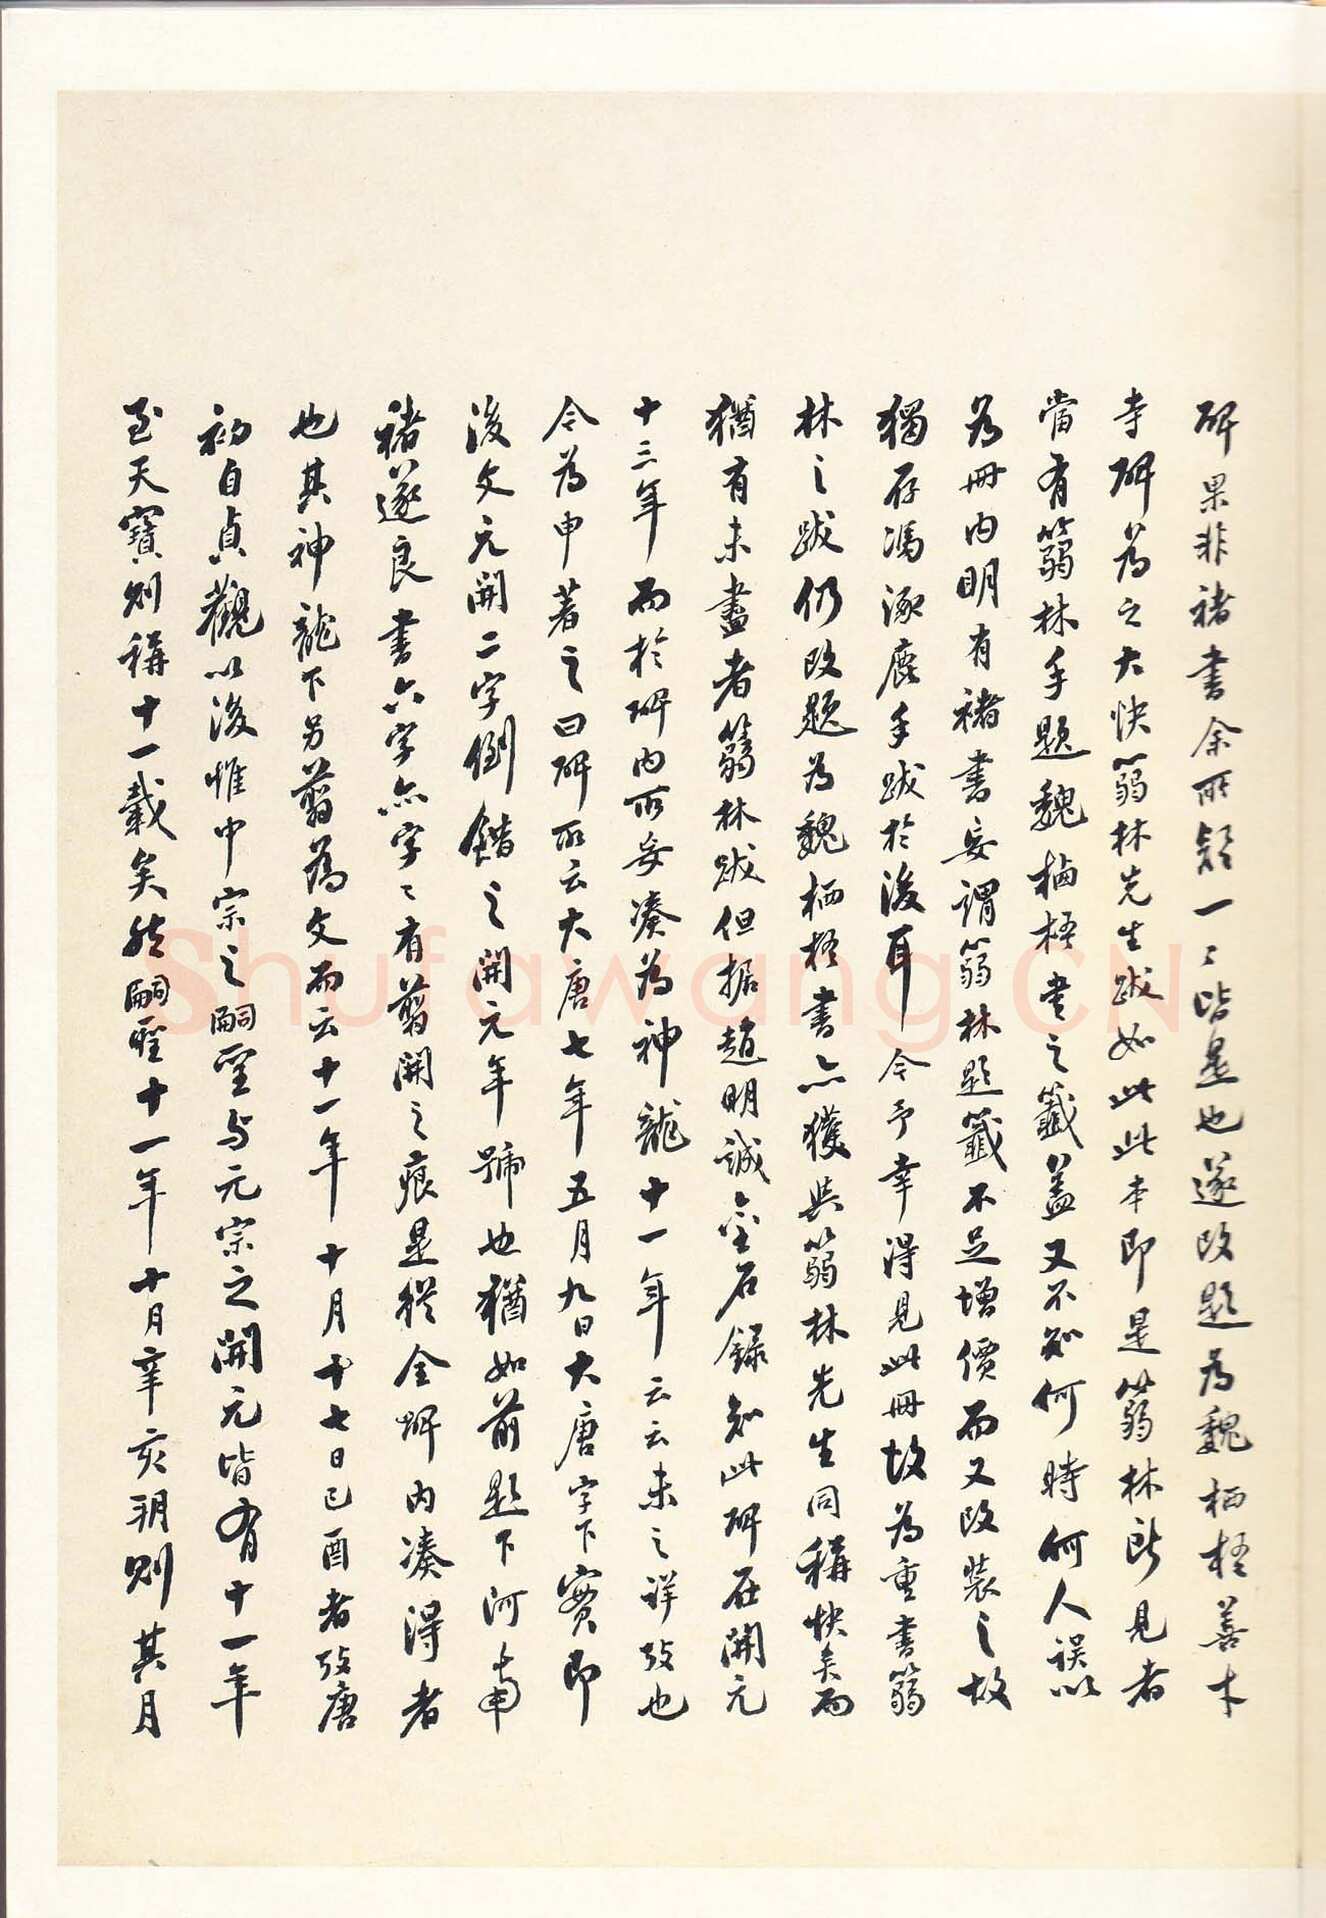 碑果非褚書余所疑一〻皆是也遂改題為魏栖梧善才
寺碑為之大快蒻林先生跋如此此本即是蒻林所見者
當有蒻林手題魏栖梧書之籤蓋又不知何時何人誤以
為冊內明有褚書妄謂蒻林題籤不足增價而又改裝之故
獨存馮涿鹿手跋於後耳今予幸得見此冊故為重書蒻
林之跋仍改題為魏栖梧書亦獲與蒻林先生同稱快矣而
猶有未盡者蒻林跋但据趙明誠金石錄知此碑在開元
十三年而於碑內所妄湊為神龍十一年云云未之詳攷也
今為申著之曰碑所云大唐七年五月九日大唐字下實即
後文元開二字倒錯之開元年號也猶如前題下河南
褚遂良書六字亦字〻有翦開之痕是從全碑內湊得者
也其神龍下另翦為文而云十一年十月十七日己酉者攷唐
初自貞觀以後惟中宗之嗣聖与元宗之開元皆有十一年
至天寶則稱十一載矣然嗣聖十一年十月辛亥朔則其月
Shufawang.CN